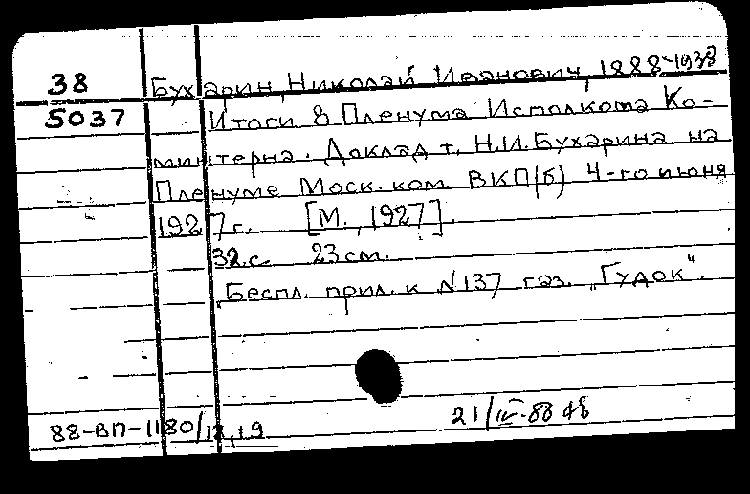 38 Бухарин, Николай Иванович, 1888-1938
5037 Итоги 8 Пленума Исполкома Ко-
минтерна. Доклад т. Н.И. Бухарина на
Пленуме Моск. ком. ВКП(б) 4-го июня
1927г. [М., 1927].
32 с. 23 см.
Беспл. прил. к №137 газ. "Гудок".
21/IV-88
88-ВП-1180/18,19